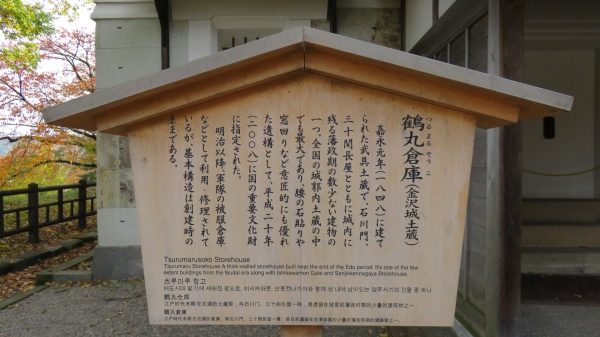 つるまるそうこ
鶴丸倉庫（金沢城土蔵）
嘉永元年（一八四八）に建て
られた武具土蔵で、石川門、
三十間長屋とともに城内に
残る藩政期の数少ない建物の
一つ。全国の城郭内土蔵の中
でも最大であり、腰の石貼りや
窓回りなど意匠的にも優れ
た遺構として、平成二十年
（二〇〇八）に国の重要文化財
に指定された。
明治以降、軍隊の被服倉庫
などとして利用・修理されて
いるが、基本構造は創建時の
ままである。
Tsurumarusoko Storehouse
Tsurumaru Storehouse A thick-walled storehouse built near the end of the Edo period. It's one of the few
extant buildings from the feudal era along with Ishikawamon Gate and Sanjikkennagaya Storehouse.
츠루마루 창고
에도시대 말기에 세워진 광으로, 이시카와몬, 산줏켄나가야와 함께 성 내에 남아있는 영주시기의 건물 중 하나
鹤丸仓库
鶴丸倉庫